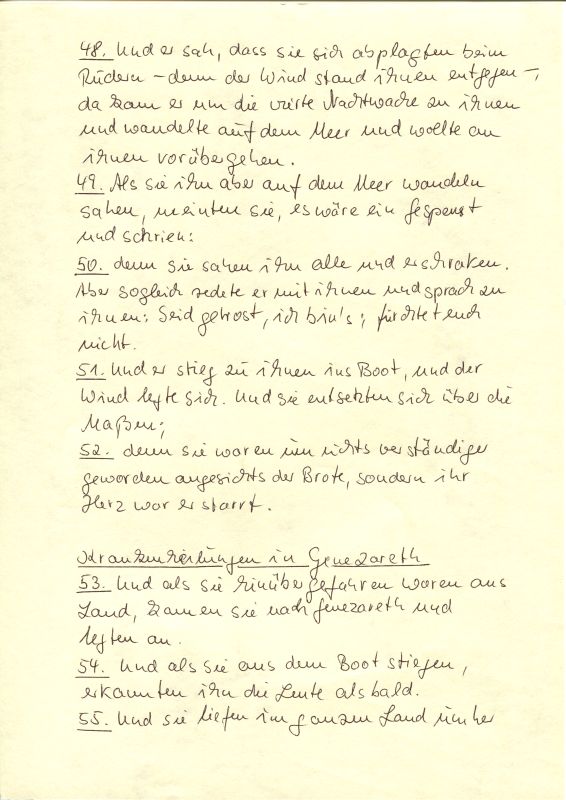 48. Und er sah, dass sie sich abplagten beim
Rudern – denn der Wind stand ihnen entgegen –,
da kam er um die vierte Nachtwache zu ihnen
und wandelte auf dem Meer und wollte an
ihnen vorübergehen.
49. Als sie ihn aber auf dem Meer wandeln
sahen, meinten sie, es wäre ein Gespenst
und schrien:
50. denn sie sahen ihn alle und erschraken.
Aber sogleich redete er mit ihnen und sprach zu
ihnen: Seid getrost, ich bin's; fürchtet euch
nicht.
51. Und er stieg zu ihnen ins Boot, und der
Wind legte sich. Und sie entsetzten sich über die
Maßen;
52. denn sie waren um nichts verständiger
geworden angesichts der Brote, sondern ihr
Herz war erstarrt.
Krankenheilungen in Genezareth
53. Und als sie hinübergefahren waren ans
Land, kamen sie nach Genezareth und
legten an.
54. Und als sie aus dem Boot stiegen,
erkannten ihn die Leute alsbald.
55. Und sie liefen im ganzen Land umher